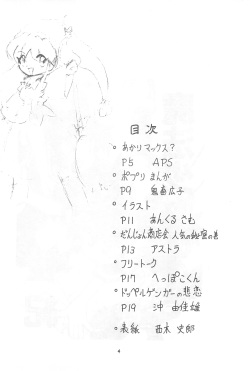 目次
° あかりマックス?
P5 APS
° ポプリまんが
P9 鬼畜広子
° イラスト
P11 あんくるさむ
° だんじょん商店会 人気の秘密の巻
P13 アストラ
° フリートーク
P17 へっぽこくん
° ドッペルゲンガーの悲恋
P19 沖 由佳雄
° 表紙 西木 史郎
4